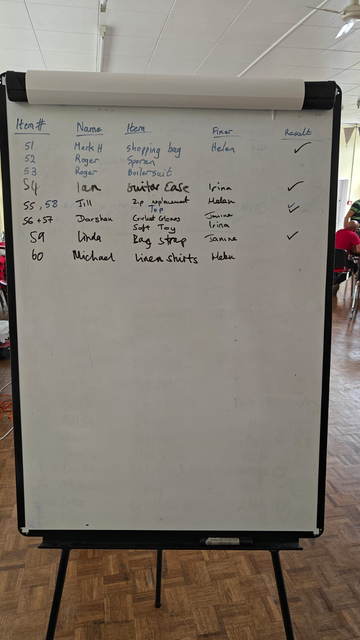 Item # Name Item Fixer Result
51 Mark H shopping bag Helen ✓
52 Roger Sporran
53 Roger Boilersuit
54 Ian Guitar Case Irina ✓
55, 58 Jill Zip replacement Helen ✓
Top
56 + 57 Darshan Cricket Gloves Janine ✓
Soft Toy Irina
59 Linda Bag strap Janine ✓
60 Michael Linen shirts Helen